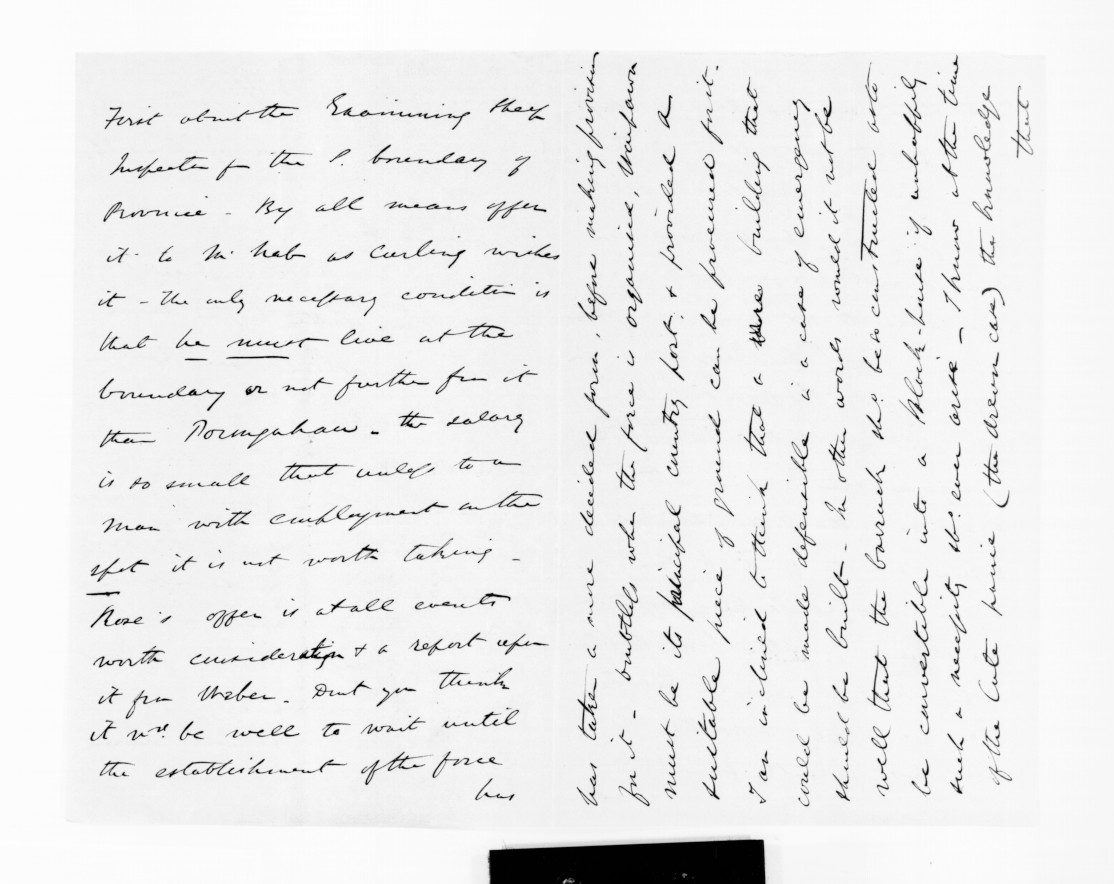 First about the Examining Sheep
Inspector for the S. boundary of
Province - By all means offer
it to McNab as Curling wishes
it - the only necessary condition is
that he must live at the
boundary or not further from it
than Porangahau - the salary
is so small that unless to a
man with employment on the
spot it is not worth taking -
Rose's offer is at all events
worth consideration & a report upon
it from Weber. Dont you think
it wd. be well to wait until
the establishment of the force
has
has taken a more decided form, before making provision
for it - doubtless when the force is organised, Waipawa
must be its principal country post, & provided a
suitable piece of ground can be procured for it.
I am inclined to think that a building that
could be made defensible in a case of emergency
should be built - In other words would it not be
well that the barrack shd. be so constructed as to
be convertible into a block-house if unhappily
such a necessity shd. ever arise - I know at the time
of the Cute panic (the drowning case) the knowledge
that